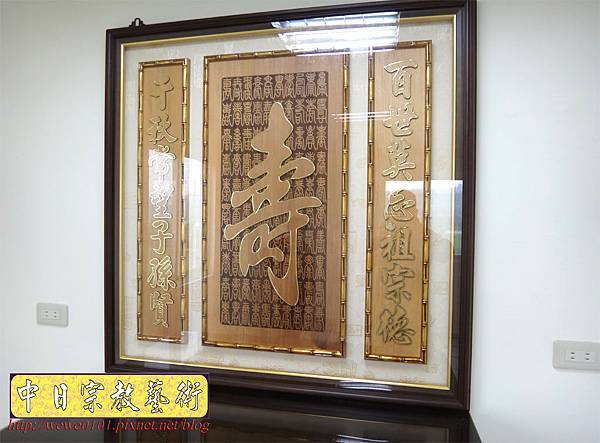 百世莫忘祖宗德
壽
千秋常望子孫賢
中日宗教藝術
http://wewe0101.pixnet.net/blog